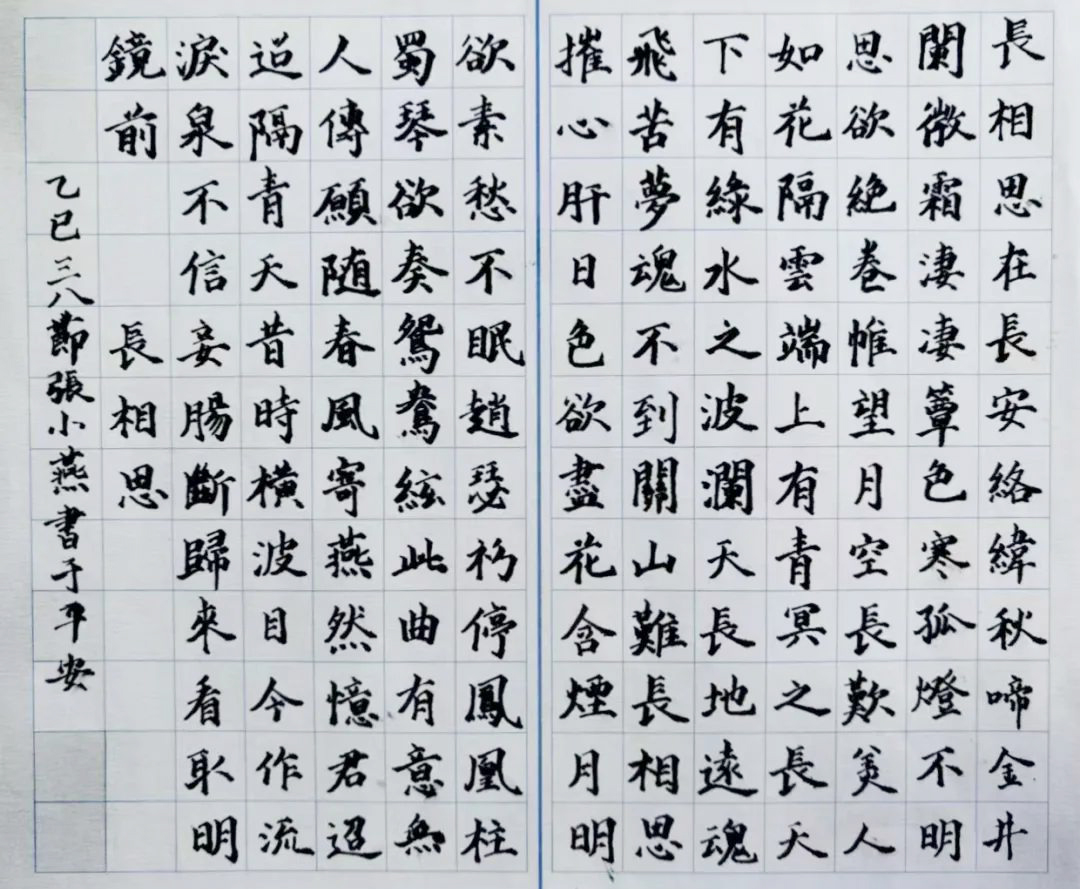 長相思在長安絡緯秋啼金井
闌微霜淒淒簟色寒孤燈不明
思欲絶卷帷望月空長歎美人
如花隔雲端上有青冥之長天
下有綠水之波瀾天長地遠魂
飛苦夢魂不到關山難長相思
摧心肝日色欲盡花含煙月明
欲素愁不眠趙瑟初停鳳凰柱
蜀琴欲奏鴛鴦絃此曲有意無
人傳願随春風寄燕然憶君迢
迢隔青天昔時橫波目今作流
淚泉不信妾腸斷歸來看取明
鏡前 長相思
乙巳三八節張小燕書于平安